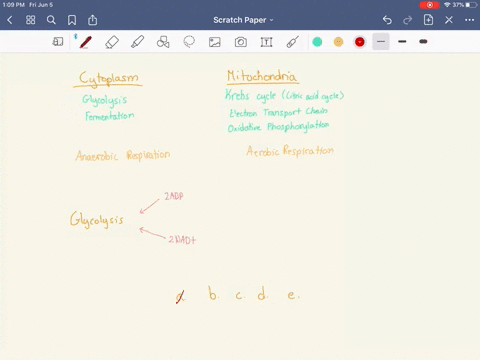 1:09 PM Fri Jun 5
37%
Scratch Paper
Cytoplasm
Glycolysis
Fermentation
Anaerobic Respiration
Mitochondria
Krebs cycle (Citric acid cycle)
Electron Transport Chain
Oxidative Phosphorylation
Aerobic Respiration
2ADP
Glycolysis
2NAD+
a. b. c. d. e.